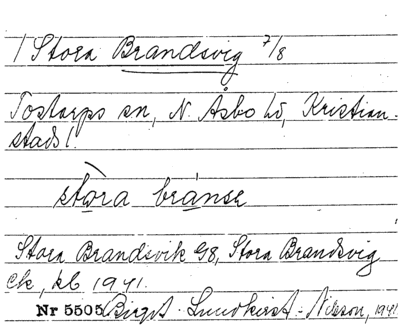 1 Stora Brandsvig 7/8
Tostarps sn, N. Åsbo hd, Kristian-
stads l.
stora bränse
Stora Brandsvik GS, Stora Brandsvig
ek, kb 1941.
Nr 5505 Birgit Lundkvist-Nilsson, 1941